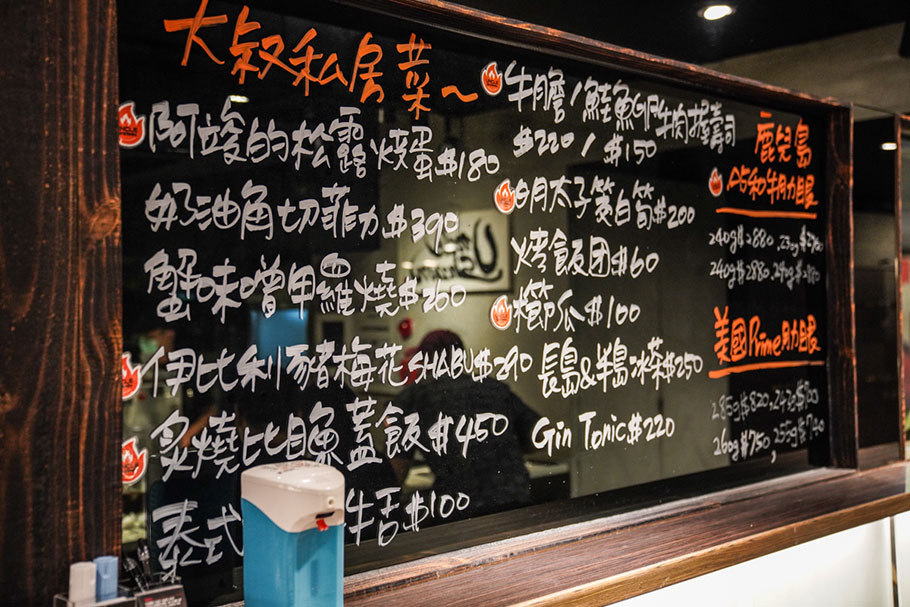 大叔私房菜~
阿竣的松露燒蛋$180
奶油角切菲力$390
蟹味噌甲羅燒$260
伊比利豬梅花SHABU$290
炙燒比目魚蓋飯$450
泰式 牛舌$100
牛膽/鮭魚卵牛肉握壽司
$220/$150
明太子筊白筍$200
烤飯团$60
櫛瓜$100
長島&半島冰茶$250
Gin Tonic$220
鹿兒島
A5和牛肋眼
240g$2880,
240g$2880,
美國Prime肋眼
285g$820,
260g$750,